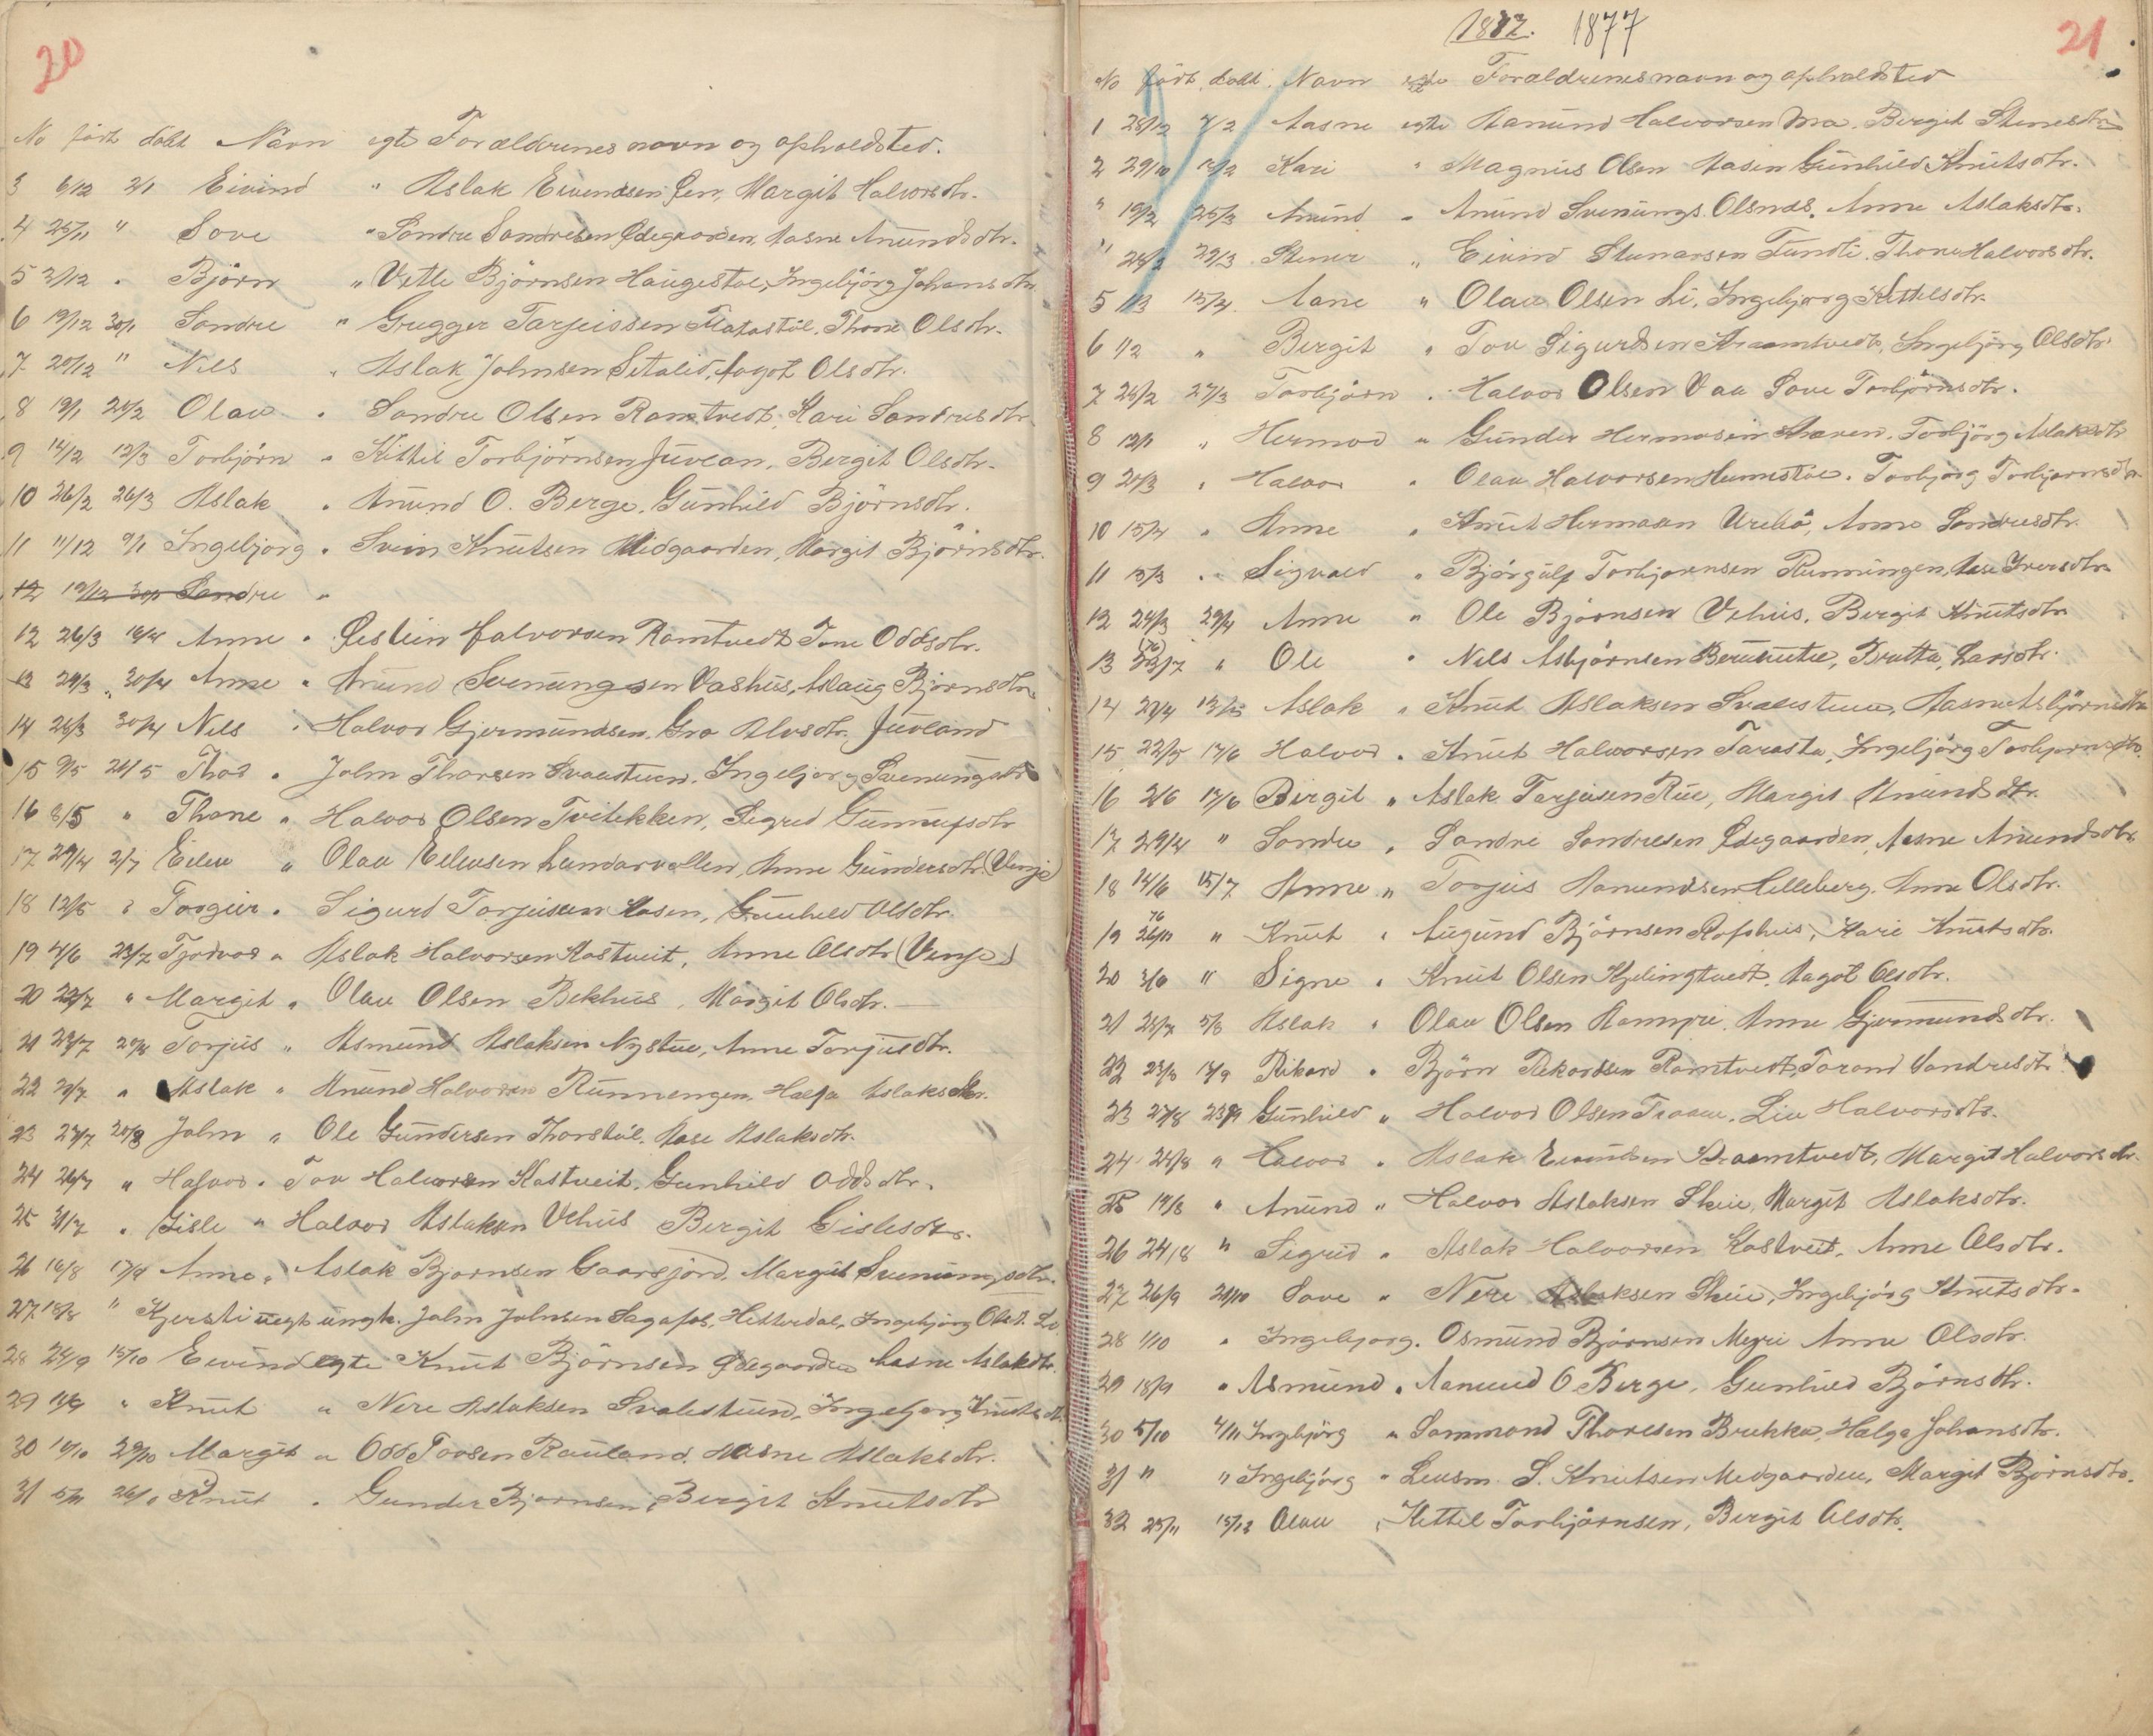 20
No födt döbt Navn egte Forældrenes navn og opholdsted.
3 6/12 2/1 Eivind " Aslak Eivendsen Øen, Margit Halvorsdtr.
4 25/11 " Sove " Sondre Sondresen Ødegaarden, Aasne Anundsdtr.
5 2/12 " Björn " Vetle Björnsen Haugestøl, Ingebjörg Johansdtr
6 19/12 30/1 Sondre " Gregger Tarjeissen Thone Olsdtr.
7 20/12 " Nils " Aslak Johnsen Aagot Olsdtr.
8 19/1 24/2 Olav " Sondre Olsen Ramtvedt, Kari Sondresdtr.
9 14/2 12/3 Torbjörn " Kittil Torbjörnsen Juvlan, Bergit Olsdtr.
10 26/2 26/3 Aslak " Anund O. Berge, Gunhild Björnsdtr.
11 11/12 9/1 Ingebjorg " Svein Knutsen Midgaarden, Margit Björnsdtr.
12 19/12 30/1 Sondre "
12 26/3 16/4 Anne " Østein Halvorsen Ramtvedt Tone Oddsdtr.
13 24/3 30/4 Anne " Anund Svenungsen Vashus, Aslaug Bjornsdtr.
14 28/3 30/4 Nils " Halvor Gjermundsen, Gro Alvsdtr. Juvland
15 9/5 26/5 Thor " John Thorsen Ingebjorg Svenungsdtr
16 8/5 " Thone " Halvor Olsen Tveitekken, Sigrid Gunnufsdtr
17 29/4 2/7 Eilev " Olav Eilevsen Lundarvollen, Anne Gundersdtr. (Vinje)
18 12/5 " Torgeir " Sigurd Torjeisen Aasen, Gunhild Olsdtr.
19 4/6 23/7 Tjodvor " Aslak Halvorsen Kostveit, Anne Olsdtr (Vinje)
20 22/7 " Margit " Olav Olsen Bekhus, Margit Olsdtr.
21 29/7 20/8 Torjus " Asmund Aslaksen Nystue, Anne Torjusdtr.
22 29/7 " Aslak " Anund Halvorsen Runnengen, Helga Aslaksdtr.
23 27/7 20/8 John " Ole Gundersen Thorstöl, Aase Aslaksdtr.
24 26/7 " Halvor " Tov Halvorsen Kostveit, Gunhild Oddsdtr.
25 31/7 " Gisle " Halvor Aslaksen Vehus Bergit Gislesdtr.
26 16/8 17/9 Anne " Aslak Bjornsen Gaarsjord, Margit Svenungsdtr.
27 18/8 " Kjersti uegt. ungk. John Johnsen Sagafos, Hitterdal, Ingebjörg Olsd.
28 24/9 15/10 Eivind egte Knut Björnsen Ødegaarden Aasne Aslaksdtr.
29 " Knut " Nere Aslaksen Svalestuen, Ingebjorg Knutsdt.
30 19/10 29/10 Margit " Odd Tovsen Rauland, Aasne Aslaksdtr.
31 Knut " Gunder Bjornsen, Bergit Knutsdtr
21
1812. 1877
No födt döbt Navn egte Forældrenes navn og opholdsted
1 28/12 7/2 Aasne egte Aanund Halvorsen Mra, Bergit
2 29/10 18/2 Kari " Magnus Olsen Aasen Gunhild Knutsdtr.
" 19/2 25/3 Anund " Anund Svenungs. Olsnæs, Anne Aslaksdtr.
" 24/2 29/3 Steiner " Eivind Stenarsen Fundli. Thone Halvorsdtr.
5 1/3 15/4 Aane " Olav Olsen Li, Ingebjorg Kittilsdtr.
6 1/2 " Bergit " Tov Sigurdsen Ingebjörg Olsdtr.
7 26/2 27/3 Torbjörn " Halvor Olsen Vaa Sove Torbjörnsdtr.
8 12/1 " Hermod " Gunder Hermodsen Torbjörg Aslaksdtr
9 20/3 " Halvor " Olav Halvorsen Torbjorg Torbjornsdtr
10 15/4 " Anne " Knut Hermaan Urebö, Anne Sondresdtr.
11 13/3 " Sigvald " Björgulf Torbjornsen Runningen, Aase Iversdtr.
12 24/3 29/4 Anne " Ole Björnsen Vehus, Bergit Knutsdtr.
13 (76) 23/7 " Ole " Nils Asbjørnsen Bratta, Larsdtr.
14 29/4 13/5 Aslak " Knut Aslaksen Svalestuen, Aasne Asbjörnsdtr
15 22/5 17/6 Halvor " Knut Halvorsen Ingebjörg Torbjornsdtr.
16 2/6 17/6 Birgit " Aslak Tarjeisen Rue, Margit Anundsdtr.
17 29/4 " Sondre " Sondre Sondresen Ødegaarden, Aasne Anundsdtr.
18 14/6 15/7 Anne " Torjus Aanundsen Lilleberg, Anne Olsdtr.
19 76 26/11 " Knut " Augund Björnsen Rofshus, Kari Knutsdtr.
20 3/6 " Signe " Knut Olsen Kjelingtvedt, Aagot Olsdtr.
21 24/7 5/8 Aslak " Olav Olsen Anne Gjermundsdtr.
22 23/8 13/9 Rikard " Björn Rikardsen Ramtvedt, Torand Sandresdtr.
23 27/8 23/9 Gunhild " Halvor Olsen Traaen, Liv Halvorsdtr.
24 24/8 " Halvor " Aslak Eivindsen Margit Halvorsdtr.
25 14/8 " Anund " Halvor Aslaksen Skeie, Margit Aslaksdtr.
26 24/8 " Sigrid " Aslak Halvorsen Kostveit, Anne Olsdtr.
27 26/9 21/10 Sove " Nere Aslaksen Skeie, Ingebjörg Knutsdtr.
28 1/10 " Ingebjorg. Osmund Björnsen Meyri Anne Olsdtr.
29 18/9 " Asmund " Aanund O Berge, Gunhild Björnsdtr.
30 5/10 4/11 Ingebjörg " Sammond Thoresen Brekka, Helga Johansdtr.
31 " " Ingebjörg " Lensm. S. Knutsen Medgaarden, Margit Björnsdtr.
32 25/11 15/12 Olav " Kettel Torbjörnsen, Bergit Olsdtr.